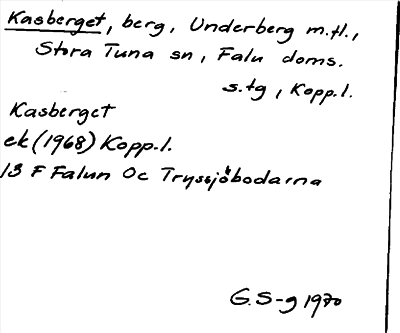 Kasberget, berg, Underberg m.fl.,
Stora Tuna sn, Falu doms.
s.tg, Kopp.l.
Kasberget
ek (1968) Kopp.l.
13 F Falun Oc Tryssjöbodarna
G. S-g 1970